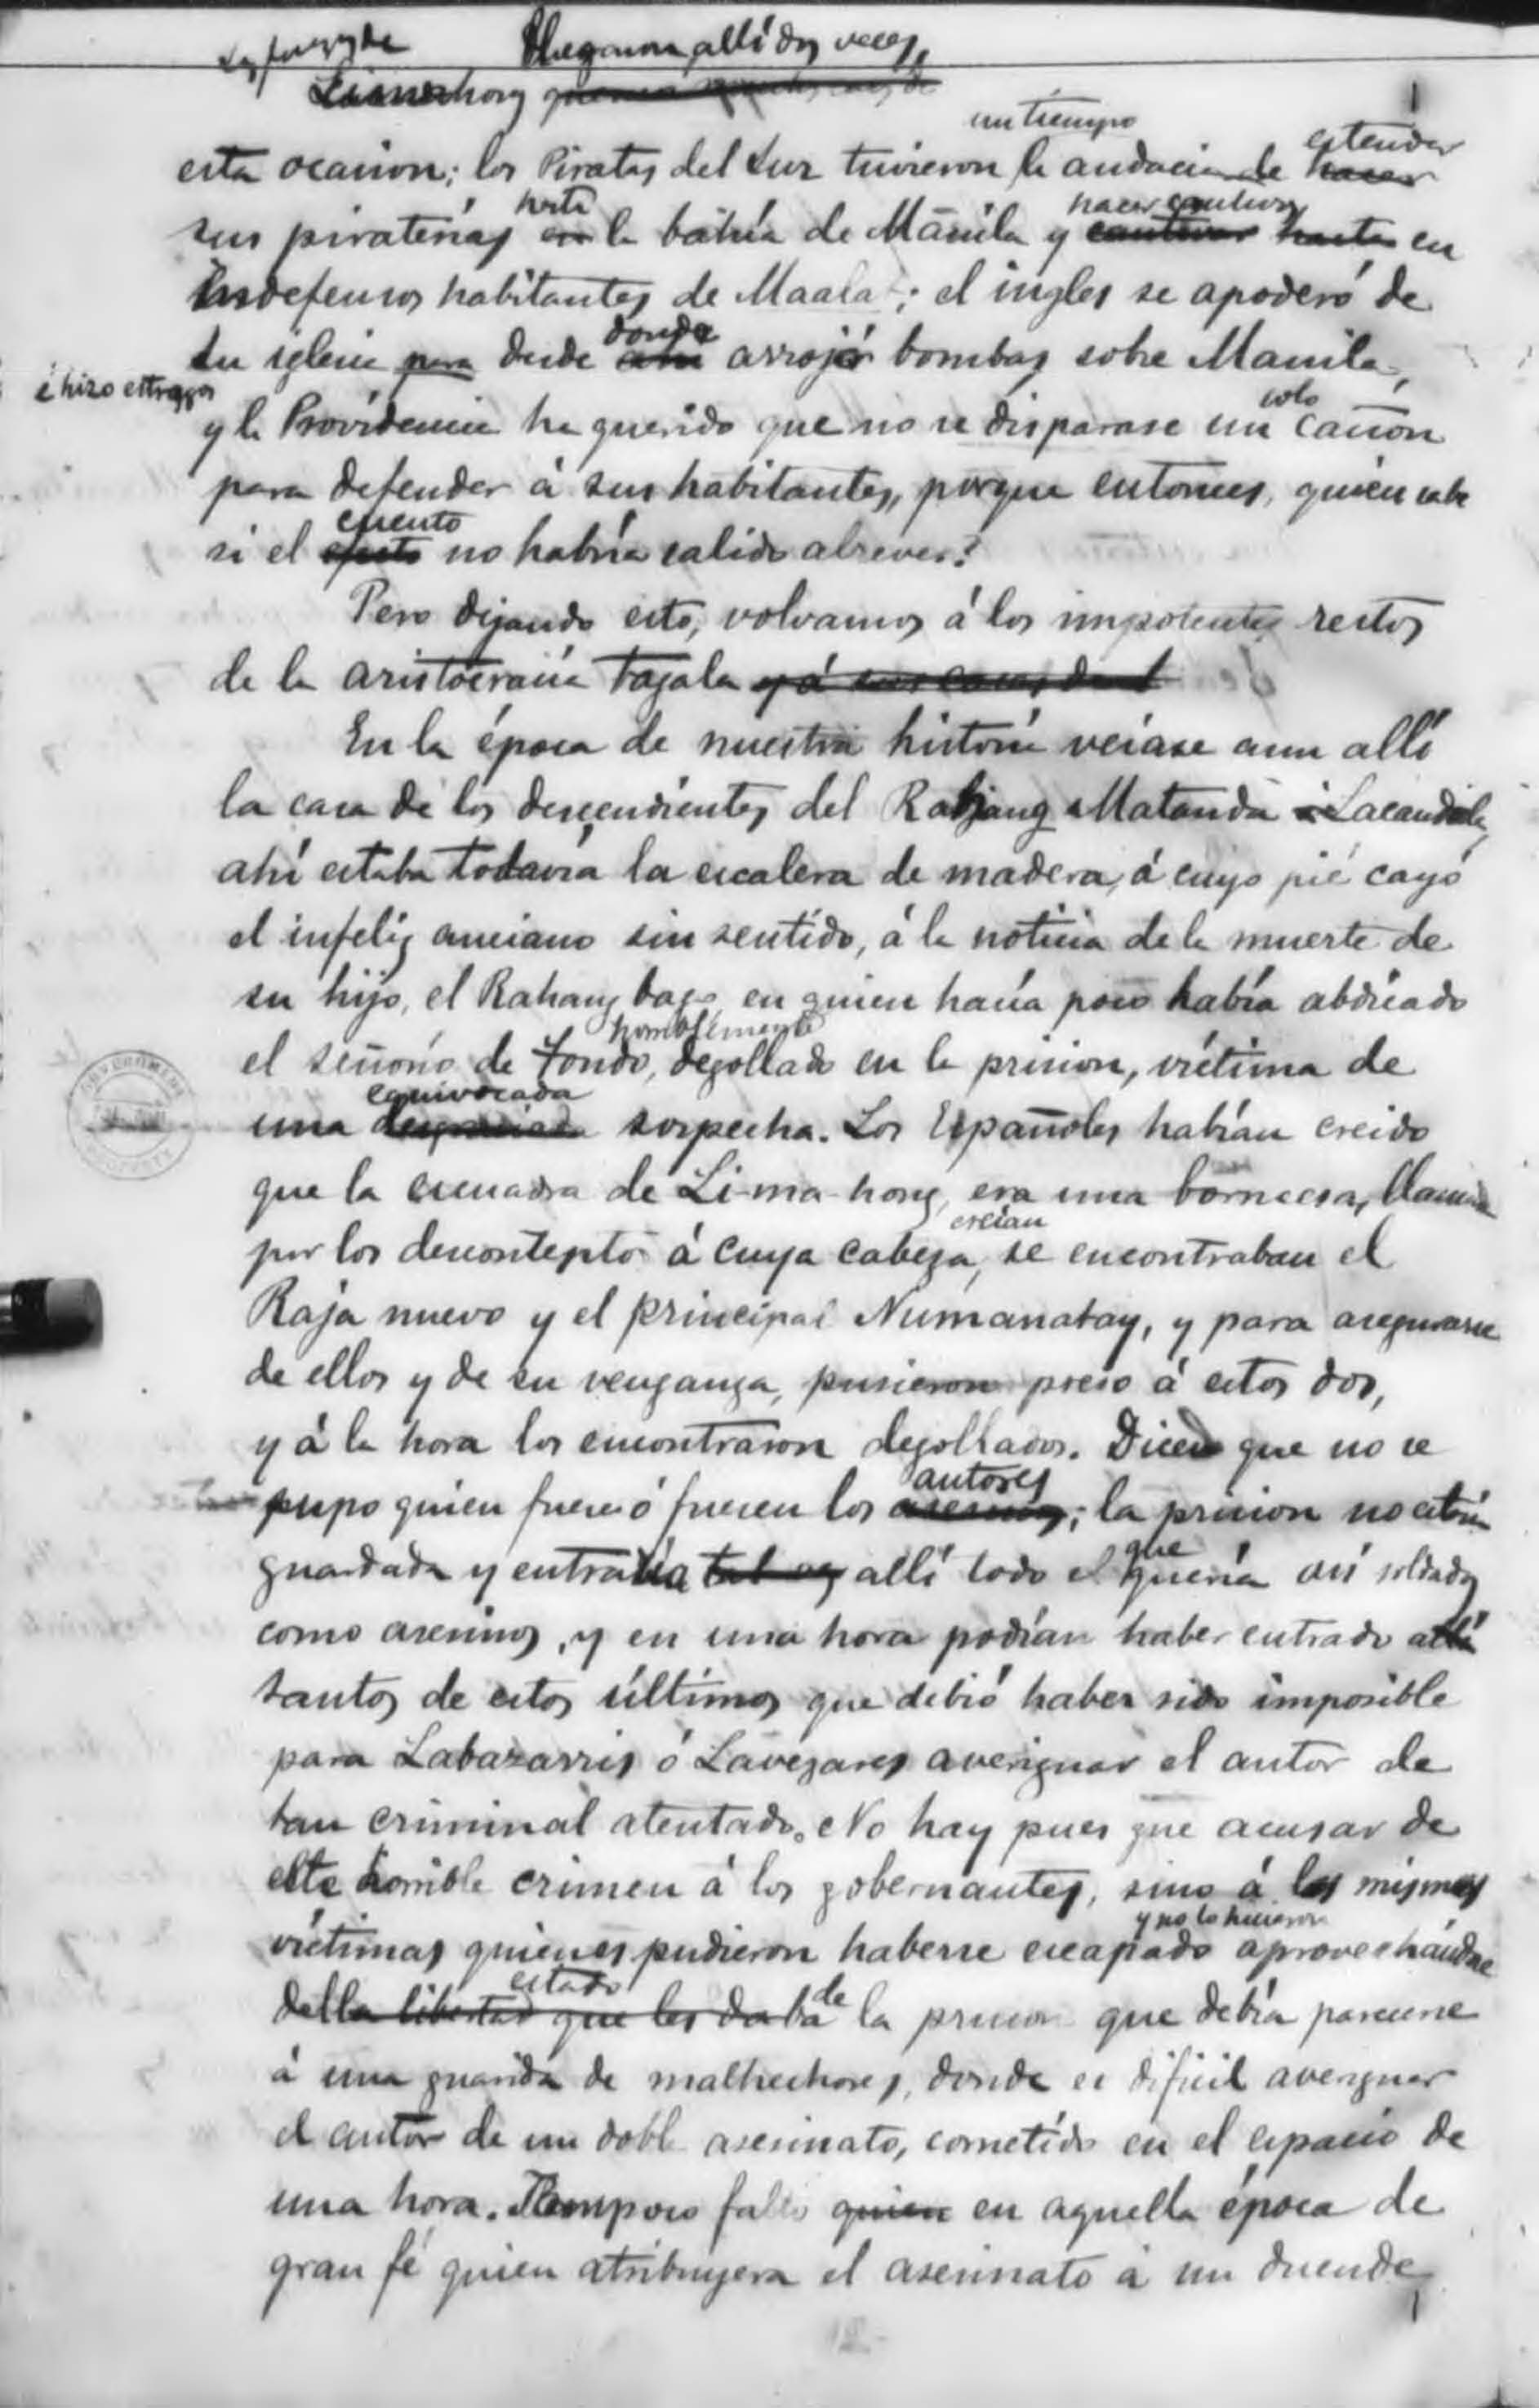 Las fuerzas de Llegaron allí dos veces,
Limahong
un tiempo
estender
esta ocasion; los Piratas del Sur tuvieron la audacia de hacer
hasta hacer cautivos
sus piraterías en la bahía de Manila y cautivar hasta en
indefensos habitantes de Maala; el ingles se apoderó de
donde
su iglesia para desde ahi arrojar bombas sobre Manila,
é hizo estragos
solo
y la Providencia ha querido que no se disparase un cañon
para defender á sus habitantes, porque entonces, quien sabe
cuento
si el no habría salido al reves?
Pero dejando esto, volvamos á los impotentes restos
de la aristocracia tagala y á sus casas
En la época de nuestra historia veíase aun allí
la casa de los descendientes del Rahjang Matanda ó Lacandola,
ahi estaba todavía la escalera de madera, á cuyo pié cayó
el infeliz anciano sin sentido, á la noticia de la muerte de
su hijo, el Rahang bago en quien hacía poco había abdicado
horriblemente
el señorío de Tondo, degollado en la prision, víctima de
equivocada
una desgraciada sospecha. Los Españoles habían creido
que la escuadra de Li-ma-hong, era una borneesa, llamada
creían
por los descontentos á cuya cabeza, se encontraban el
Raja nuevo y el principal Numanatay, y para asegurarse
de ellos y de su venganza, pusieron preso á estos dos,
y á la hora los encontraron degollados. Dicen que no se
autores
supo quien fuese ó fuesen los asesinos; la prision no estaría
que
guardada y entraría tal vez allí todo el quería así soldados
como asesinos, y en una hora podían haber entrado allí
tantos de estos últimos que debió haber sido imposible
para Labazarris ó Lavezares averiguar el autor de
tan criminal atentado. No hay pues que acusar de
este horrible crimen á los gobernantes, sino á las mismas
y no lo hicieron
víctimas quienes pudieron haberse escapado aprovechándose
estado de
della libertad que les daba la prision que debía parecerse
á una guarida de malhechores, donde es difícil averiguar
el autor de un doble asesinato, cometido en el espacio de
una hora. Tampoco faltó quien en aquella época de
gran fé quien atribuyera el asesinato á un duende,